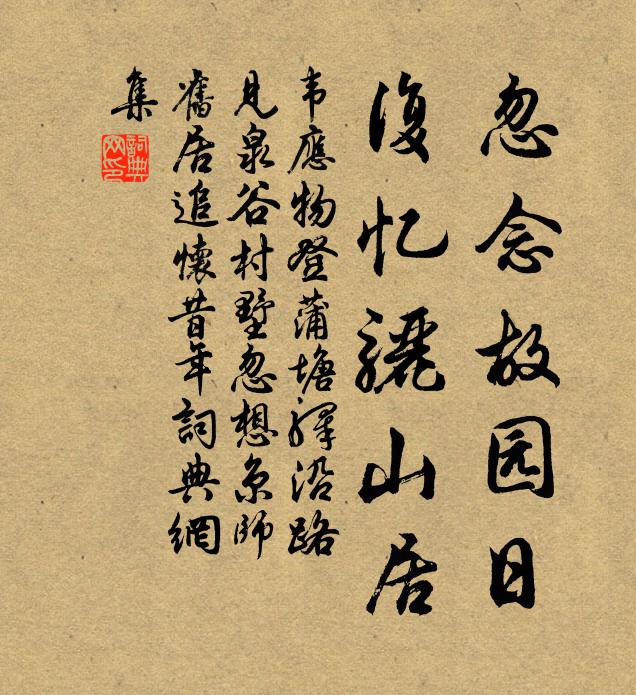 忽念故园日
復忆骊山居
韦應物登蒲塘驿沿路
見泉谷村墅忽想京師
舊居追懷昔年詞典網
集
詞典
网印